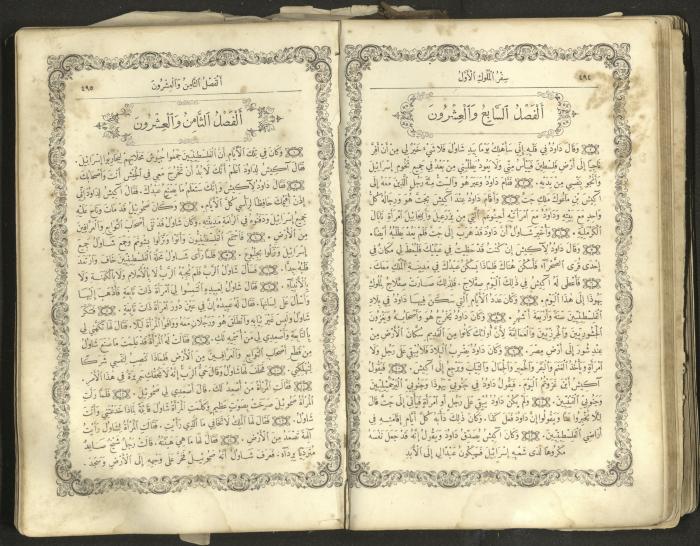 ٤٩٤
سفر الملوك الأول
الفصل السابع والعشرون
وقال داود في قلبه إني سأهلك يومًا بيد شاول فلا شيء خير لي من أن أفر
إلى أرض فلسطين فييأس مني ولا يعود يطلبني من بعد في جميع تخوم إسرائيل
وأنجو بنفسي من يديه. فقام داود وعبر هو والست مئة رجل الذين معه إلى
أكيش بن ملك جت. وأقام داود عند أكيش بجت هو ورجاله كل
واحد مع بيته وداود مع امرأتيه أحينوعم التي من يزرعيل وأبيجائيل امرأة نابال
الكرملية. وأخبر شاول أن داود قد هرب إلى جت فلم يعد يطلبه أيضا.
وقال داود لأكيش إن كنت قد حظيت في عينيك فليعط لي مكان في
إحدى قرى الصحراء فأسكن هناك فلماذا يسكن عبدك في مدينة الملك معك.
فأعطى له أكيش في ذلك اليوم صقلاج. فلذلك صارت صقلاج لملوك
يهوذا إلى هذا اليوم. وكان عدد الأيام التي سكن فيها داود في بلاد
الفلسطينيين سنة وأربعة أشهر. وكان داود يخرج هو وأصحابه ويغزون
الجشوريين والجرزيين والعمالقة لأن أولئك كانوا من القديم سكان الأرض من
عند شور إلى أرض مصر. وكان داود يضرب البلاد فلا يبقي على رجل ولا
امرأة ويأخذ الغنم والبقر والحمير والجمال والثياب ويرجع إلى أكيش. فيقول
أكيش أين غزوتم اليوم. فيقول داود في جنوبي يهوذا وجنوبي اليرحمئيليين
وجنوبي القينيين. ولم يكن داود يبقي على رجل أو امرأة فيأتي إلى جت قال
لئلا يخبروا علينا ويقولوا إن داود فعل كذا. وكان ذلك دأبه كل أيام إقامته في
أراضي الفلسطينيين. وكان أكيش يصدق داود ويقول إنه قد جعل نفسه
مكروها لدى شعبه إسرائيل فسيكون عبدا لي إلى الأبد
الفصل الثامن والعشرون
٤٩٥
الفصل الثامن والعشرون
وكان في تلك الأيام أن الفلسطينيين جمعوا جيوش محلاتهم ليحاربوا إسرائيل.
فقال أكيش لداود اعلم أنك لا بد أن تخرج معي في الجيش أنت وأصحابك.
فقال داود لأكيش إنك ستعلم ما يصنع عبدك. فقال أكيش لداود إني
إذن أقيمك حافظا لرأسي كل الأيام. وكان صموئيل قد مات وناح عليه
جميع إسرائيل ودفنوه في الرامة مدينته. وكان شاول قد نفى أصحاب التوابع والعرافين
من الأرض. فاجتمع الفلسطينيون وأتوا ونزلوا بشونم وجمع شاول جميع
إسرائيل ونزلوا بجلبوع. فلما رأى شاول محلة الفلسطينيين خاف وارتعد
قلبه جدا. فسأل شاول الرب فلم يجبه الرب لا بالأحلام ولا بالكهنة ولا
بالأنبياء. فقال شاول لعبيده التمسوا لي امرأة ذات تابعة فأذهب إليها
وأسأل على لسانها. فقال له عبيده إن في عين دور امرأة ذات تابعة. فتنكر
شاول ولبس غير ثيابه وانطلق هو ورجلان معه ووافوا المرأة ليلا. فقال لها تكهني لي
بالتابعة وأصعدي لي من أسميه لك. فقالت له المرأة قد علمت ما صنع شاول
من قطع أصحاب التوابع والعرافين من الأرض فلماذا تنصب لنفسي شركا
لتهلكني. فحلف لها شاول وقال حي الرب إنه لا يلحقك جريرة في هذا الأمر.
فقالت المرأة من أصعد لك. قال أصعدي لي صموئيل. فلما رأت
المرأة صموئيل صرخت بصوت عظيم وكلمت المرأة شاول قائلة لماذا خدعتني وأنت
شاول. فقال لها الملك لا تخافي ما الذي رأيت. فقالت المرأة لشاول رأيت
آلهة تصعد من الأرض. فقال لها ما هي هيئته. قالت رجل شيخ صاعد
متردياً برداء. فعرف شاول أنه صموئيل فخر على وجهه إلى الأرض وسجد.